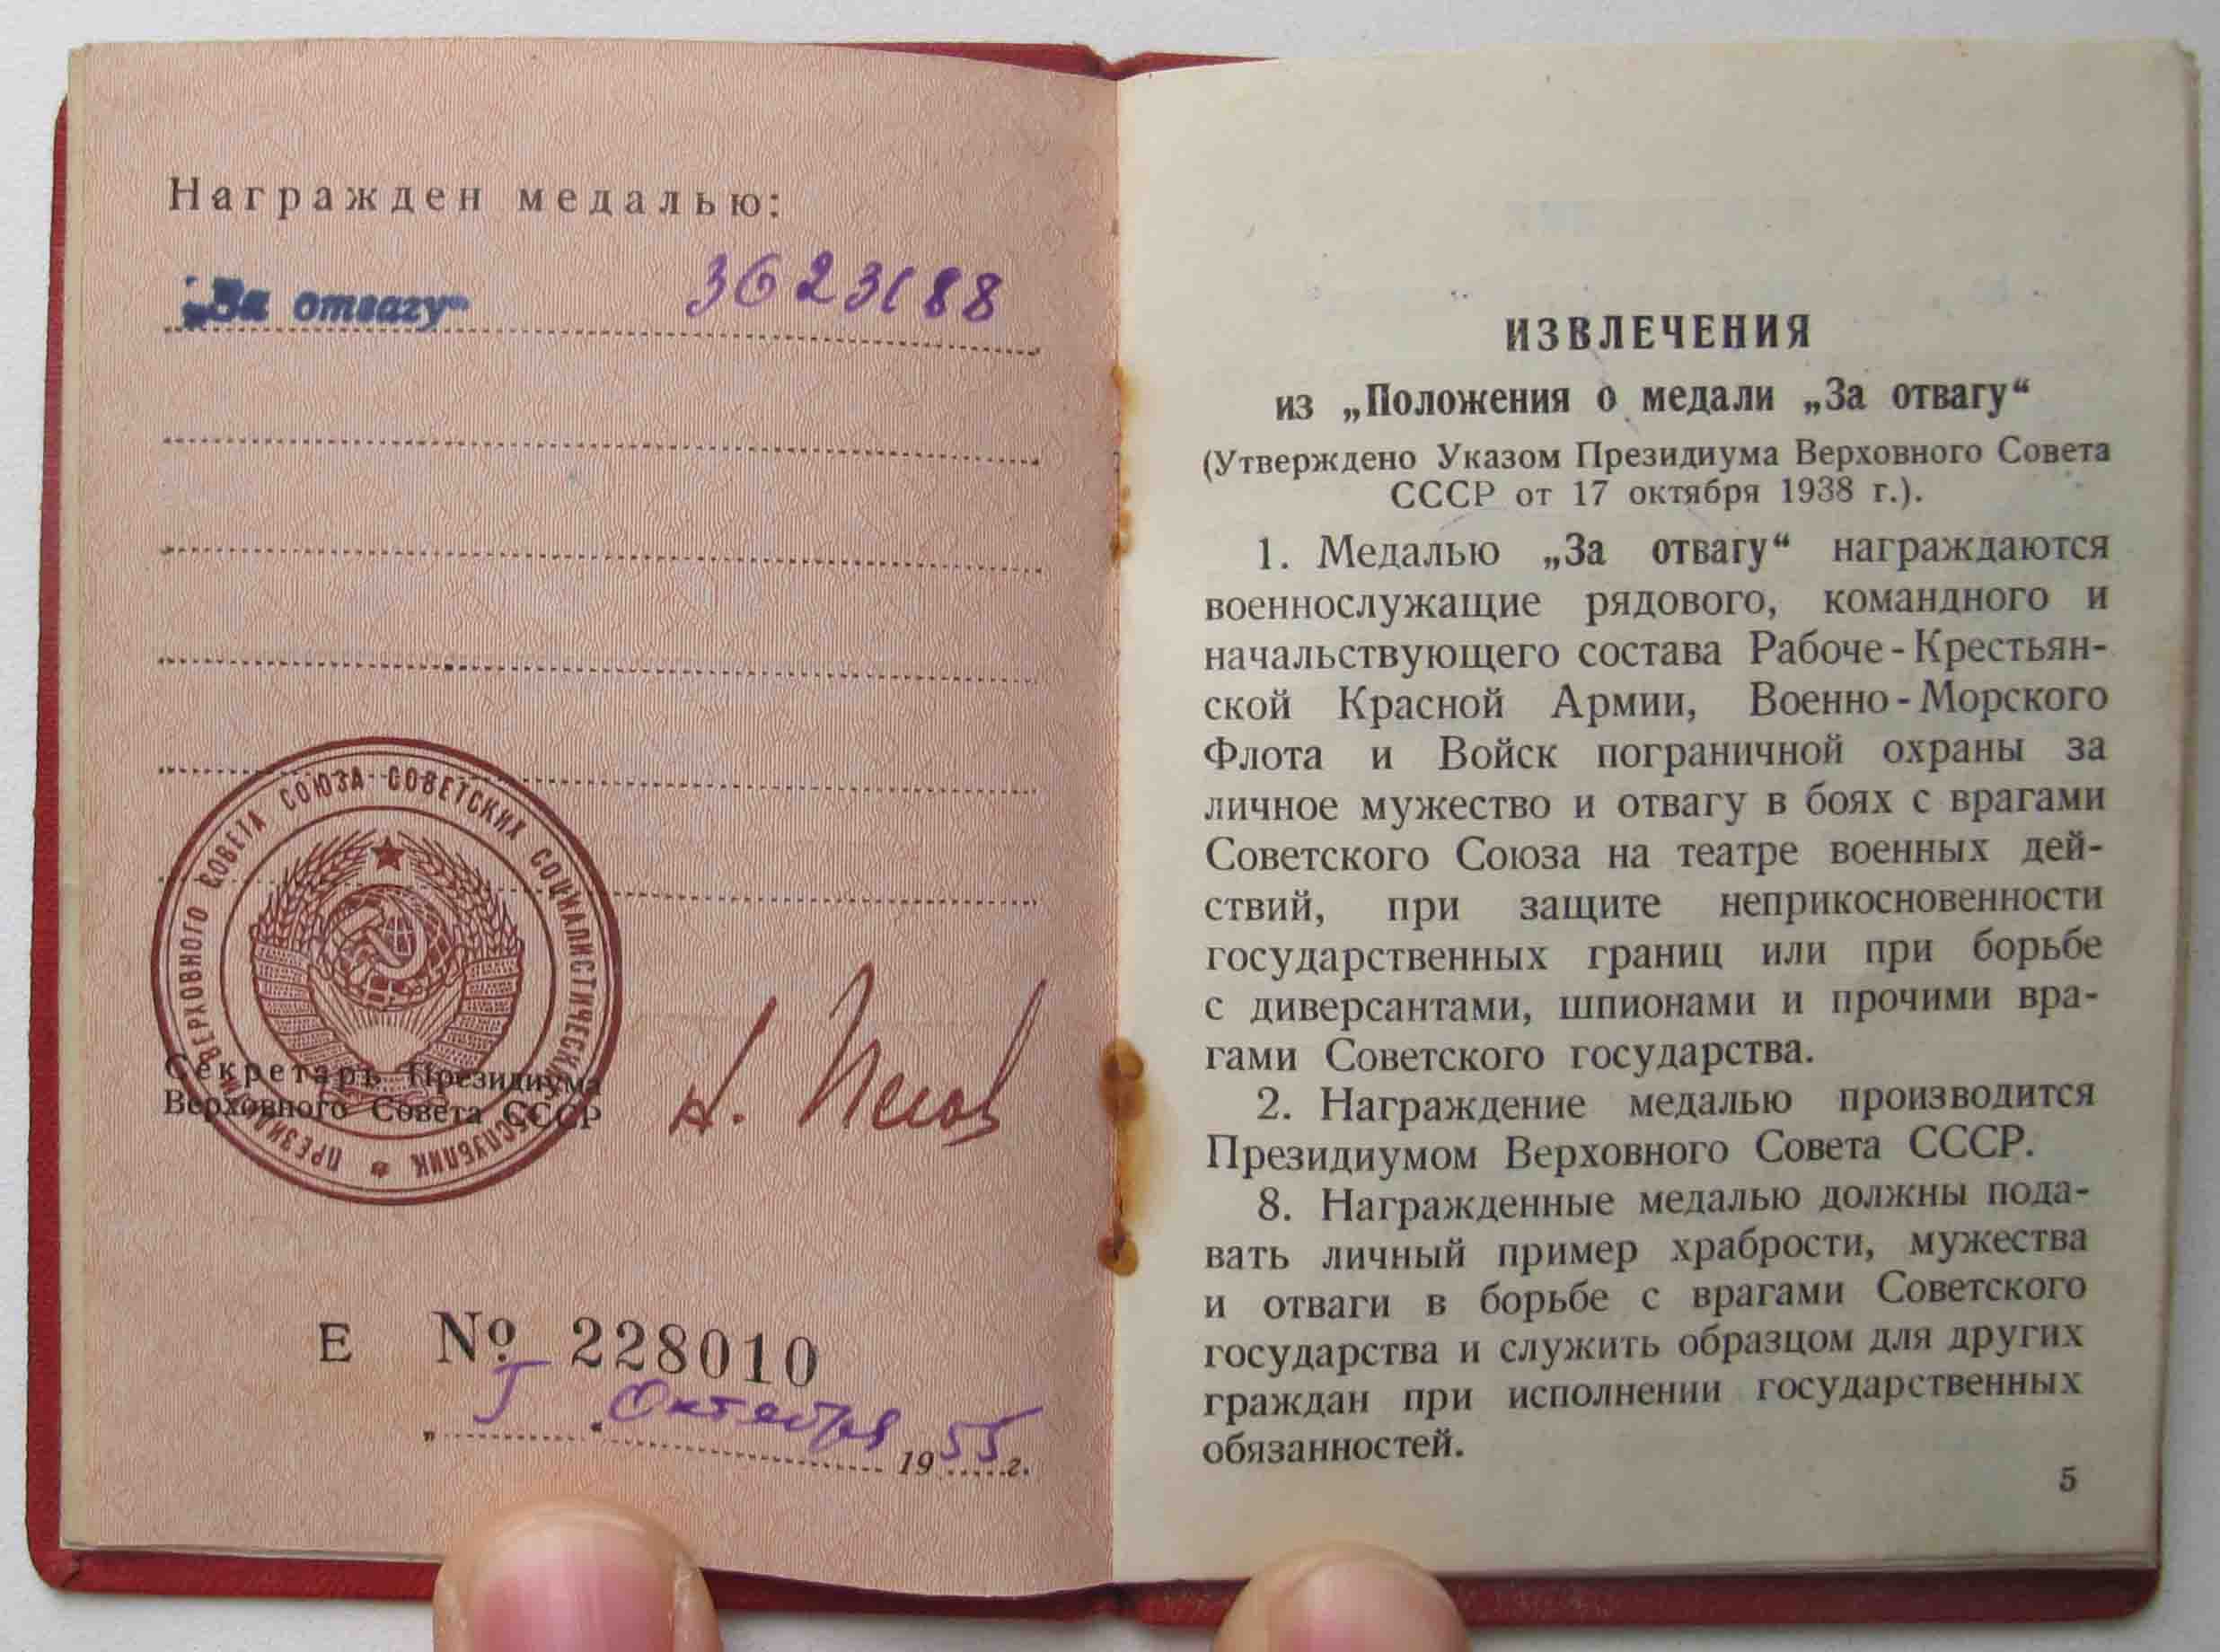 Награжден медалью:
„За отвагу“ 3623188
ПРЕЗИДИУМ ВЕРХОВНОГО СОВЕТА СОЮЗА СОВЕТСКИХ СОЦИАЛИСТИЧЕСКИХ РЕСПУБЛИК
Секретарь Президиума
Верховного Совета СССР
Н. Пегов
Е № 228010
„ “ Октября 1955 г.
ИЗВЛЕЧЕНИЯ
из „Положения о медали „За отвагу“
(Утверждено Указом Президиума Верховного Совета
СССР от 17 октября 1938 г.).
1. Медалью „За отвагу“ награждаются
военнослужащие рядового, командного и
начальствующего состава Рабоче-Крестьян-
ской Красной Армии, Военно-Морского
Флота и Войск пограничной охраны за
личное мужество и отвагу в боях с врагами
Советского Союза на театре военных дей-
ствий, при защите неприкосновенности
государственных границ или при борьбе
с диверсантами, шпионами и прочими вра-
гами Советского государства.
2. Награждение медалью производится
Президиумом Верховного Совета СССР.
8. Награжденные медалью должны пода-
вать личный пример храбрости, мужества
и отваги в борьбе с врагами Советского
государства и служить образцом для других
граждан при исполнении государственных
обязанностей.
5